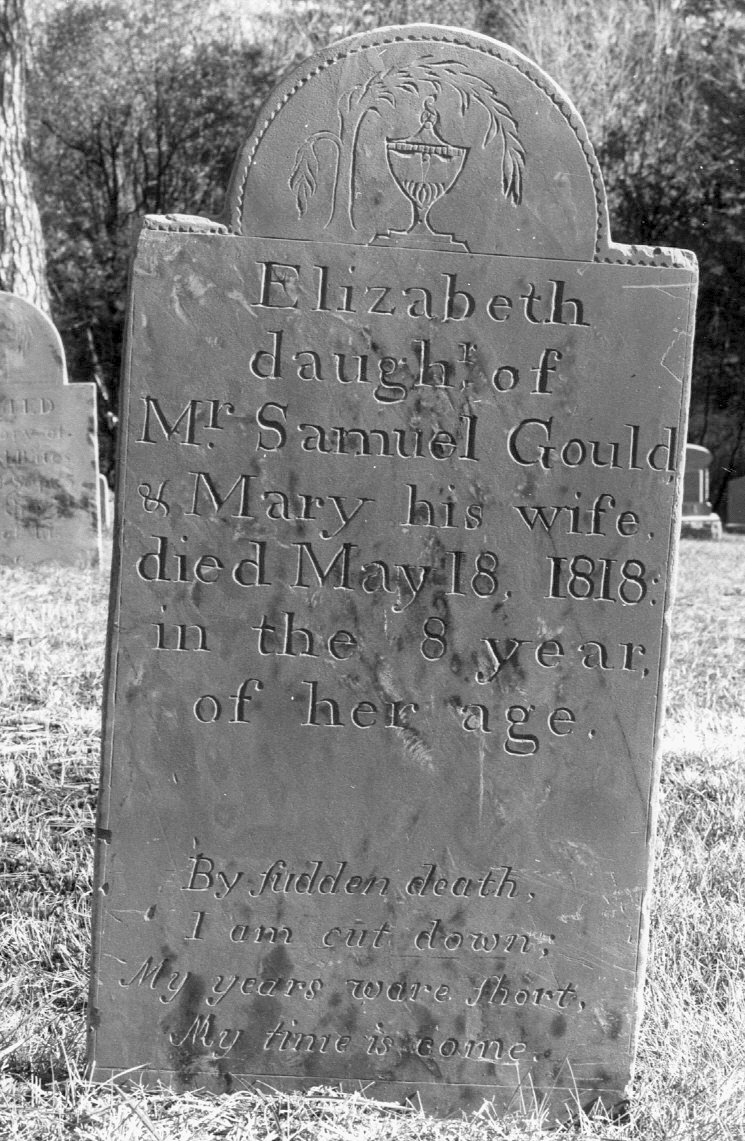 Elizabeth
daughr. of
Mr. Samuel Gould,
& Mary his wife,
died May 18, 1818:
in the 8 year,
of her age.
By ſudden death,
I am cut down;
My years ware ſhort,
My time is come.